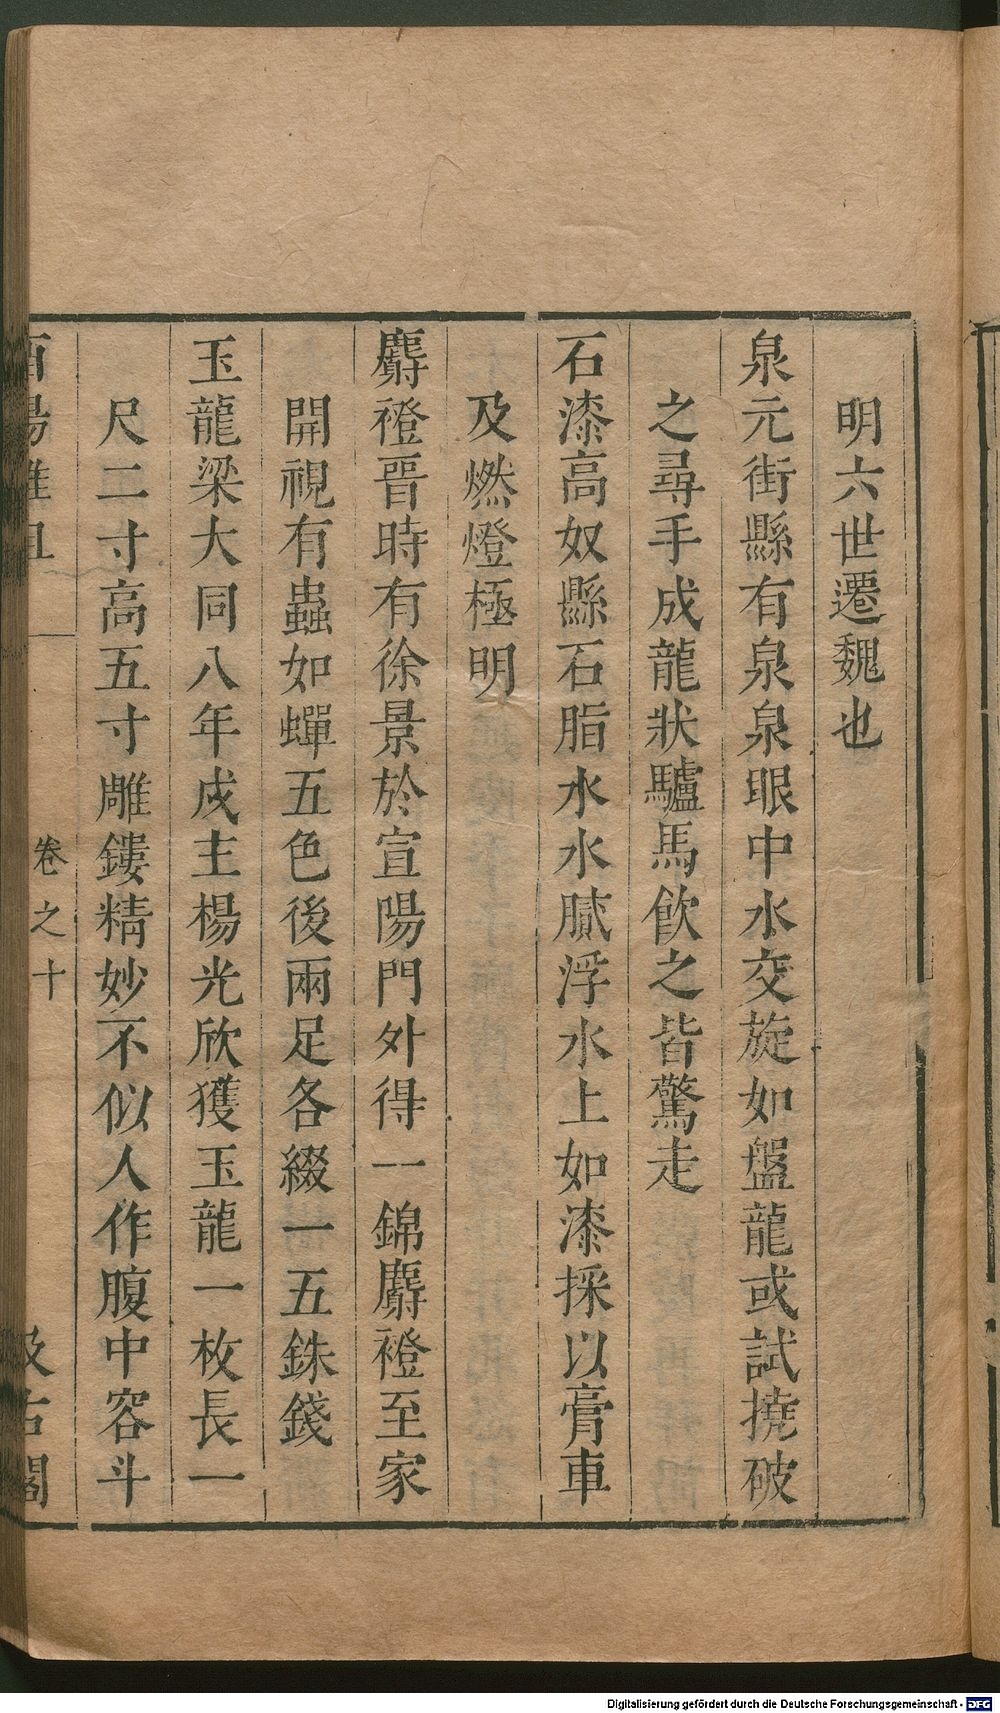 明六世遷魏也
泉元街縣有泉泉眼中水交旋如盤龍或試撓破
之尋手成龍狀驢馬飲之皆驚走
石漆高奴縣石脂水水膩浮水上如漆採以膏車
及燃燈極明
麝橙晉時有徐景於宣陽門外得一錦麝橙至家
開視有蟲如蟬五色後兩足各綴一五銖錢
玉龍梁大同八年戍主楊光欣獲玉龍一枚長一
尺二寸高五寸雕鏤精妙不似人作腹中容斗
酉陽雜俎 卷之十 汲古閣
Digitalisierung gefördert durch die Deutsche Forschungsgemeinschaft - DFG